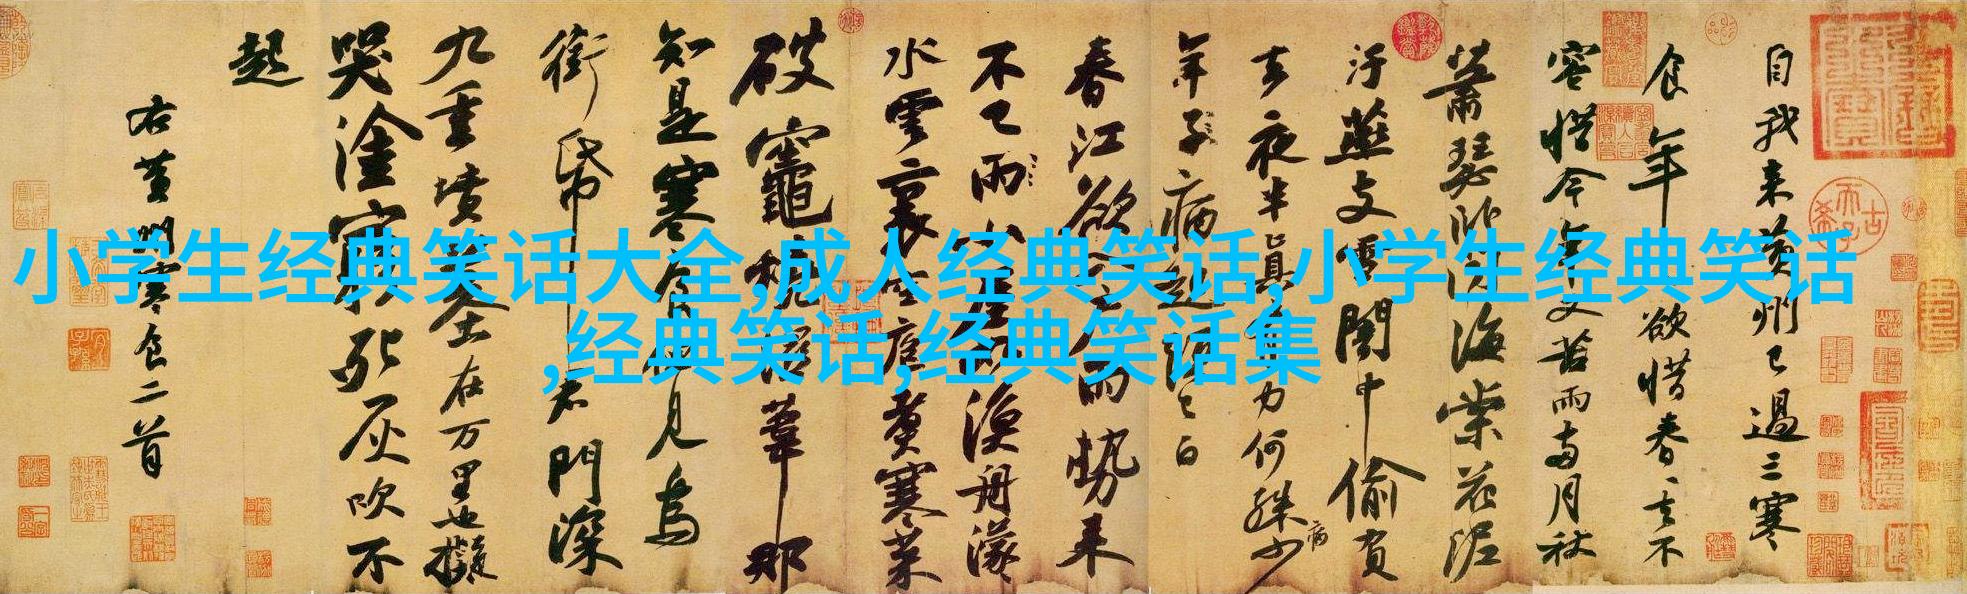 小学生经典笑话大全,成人经典笑话,小学生经典笑话
,经典笑话,经典笑话集
自我来黄州已過三寒
食年欲惜春去不
容惜今年又苦雨兩月秋
蕭瑟卧聞海棠花泥
汙燕支雪闇中偷負
去夜半真有力何殊少
病
年子病起頭已白
春江欲入户雨勢来
不已雨小屋如漁舟濛
水雲裏空庖煮寒菜
破竈燒濕葦那
知是寒食但見烏
銜帋君門深
九重墳墓在万里也擬
哭塗窮死灰吹不
起
右黄州寒食二首